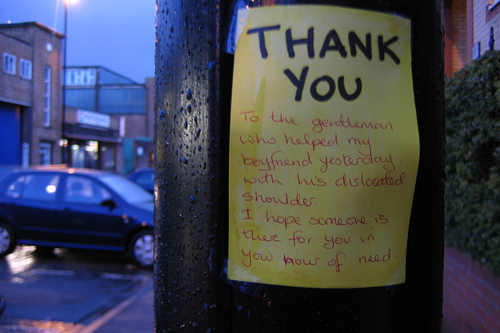 THANK
YOU
To the gentleman
who helped my
boyfriend yesterday
with his dislocated
shoulder.
I hope someone is
there for you in
your hour of need.